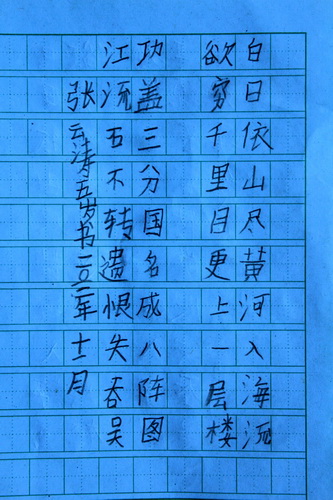 白日依山尽黄河入海流
欲穷千里目更上一层楼
功盖三分国名成八阵图
江流石不转遗恨失吞吴
张云涛五岁书二〇二年十二月